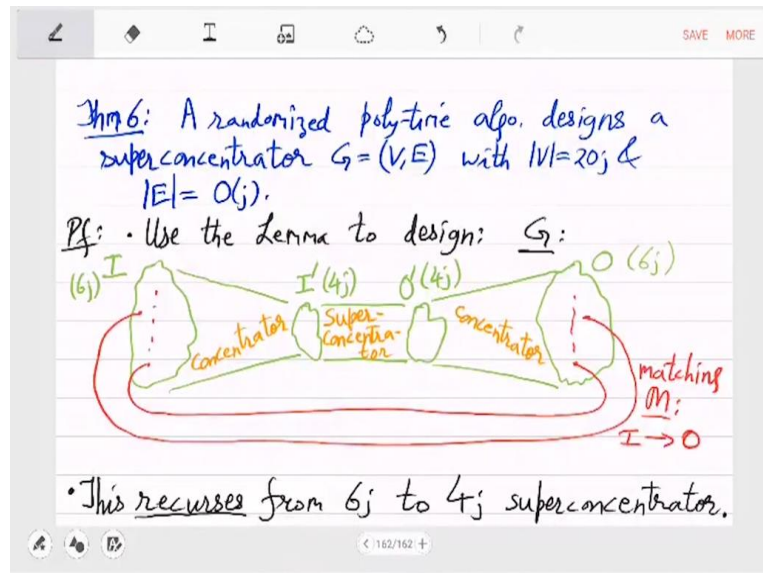 SAVE MORE
Thm 6: A randomized poly-time algo. designs a
superconcentrator G = (V,E) with |V|=20j &
|E|= O(j).
Pf: • Use the Lemma to design: G:
(6j) I I'(4j) O'(4j) O (6j)
concentrator Super-concentra-tor concentrator
matching
M:
I → O
• This recurses from 6j to 4j superconcentrator.
< 162/162 +